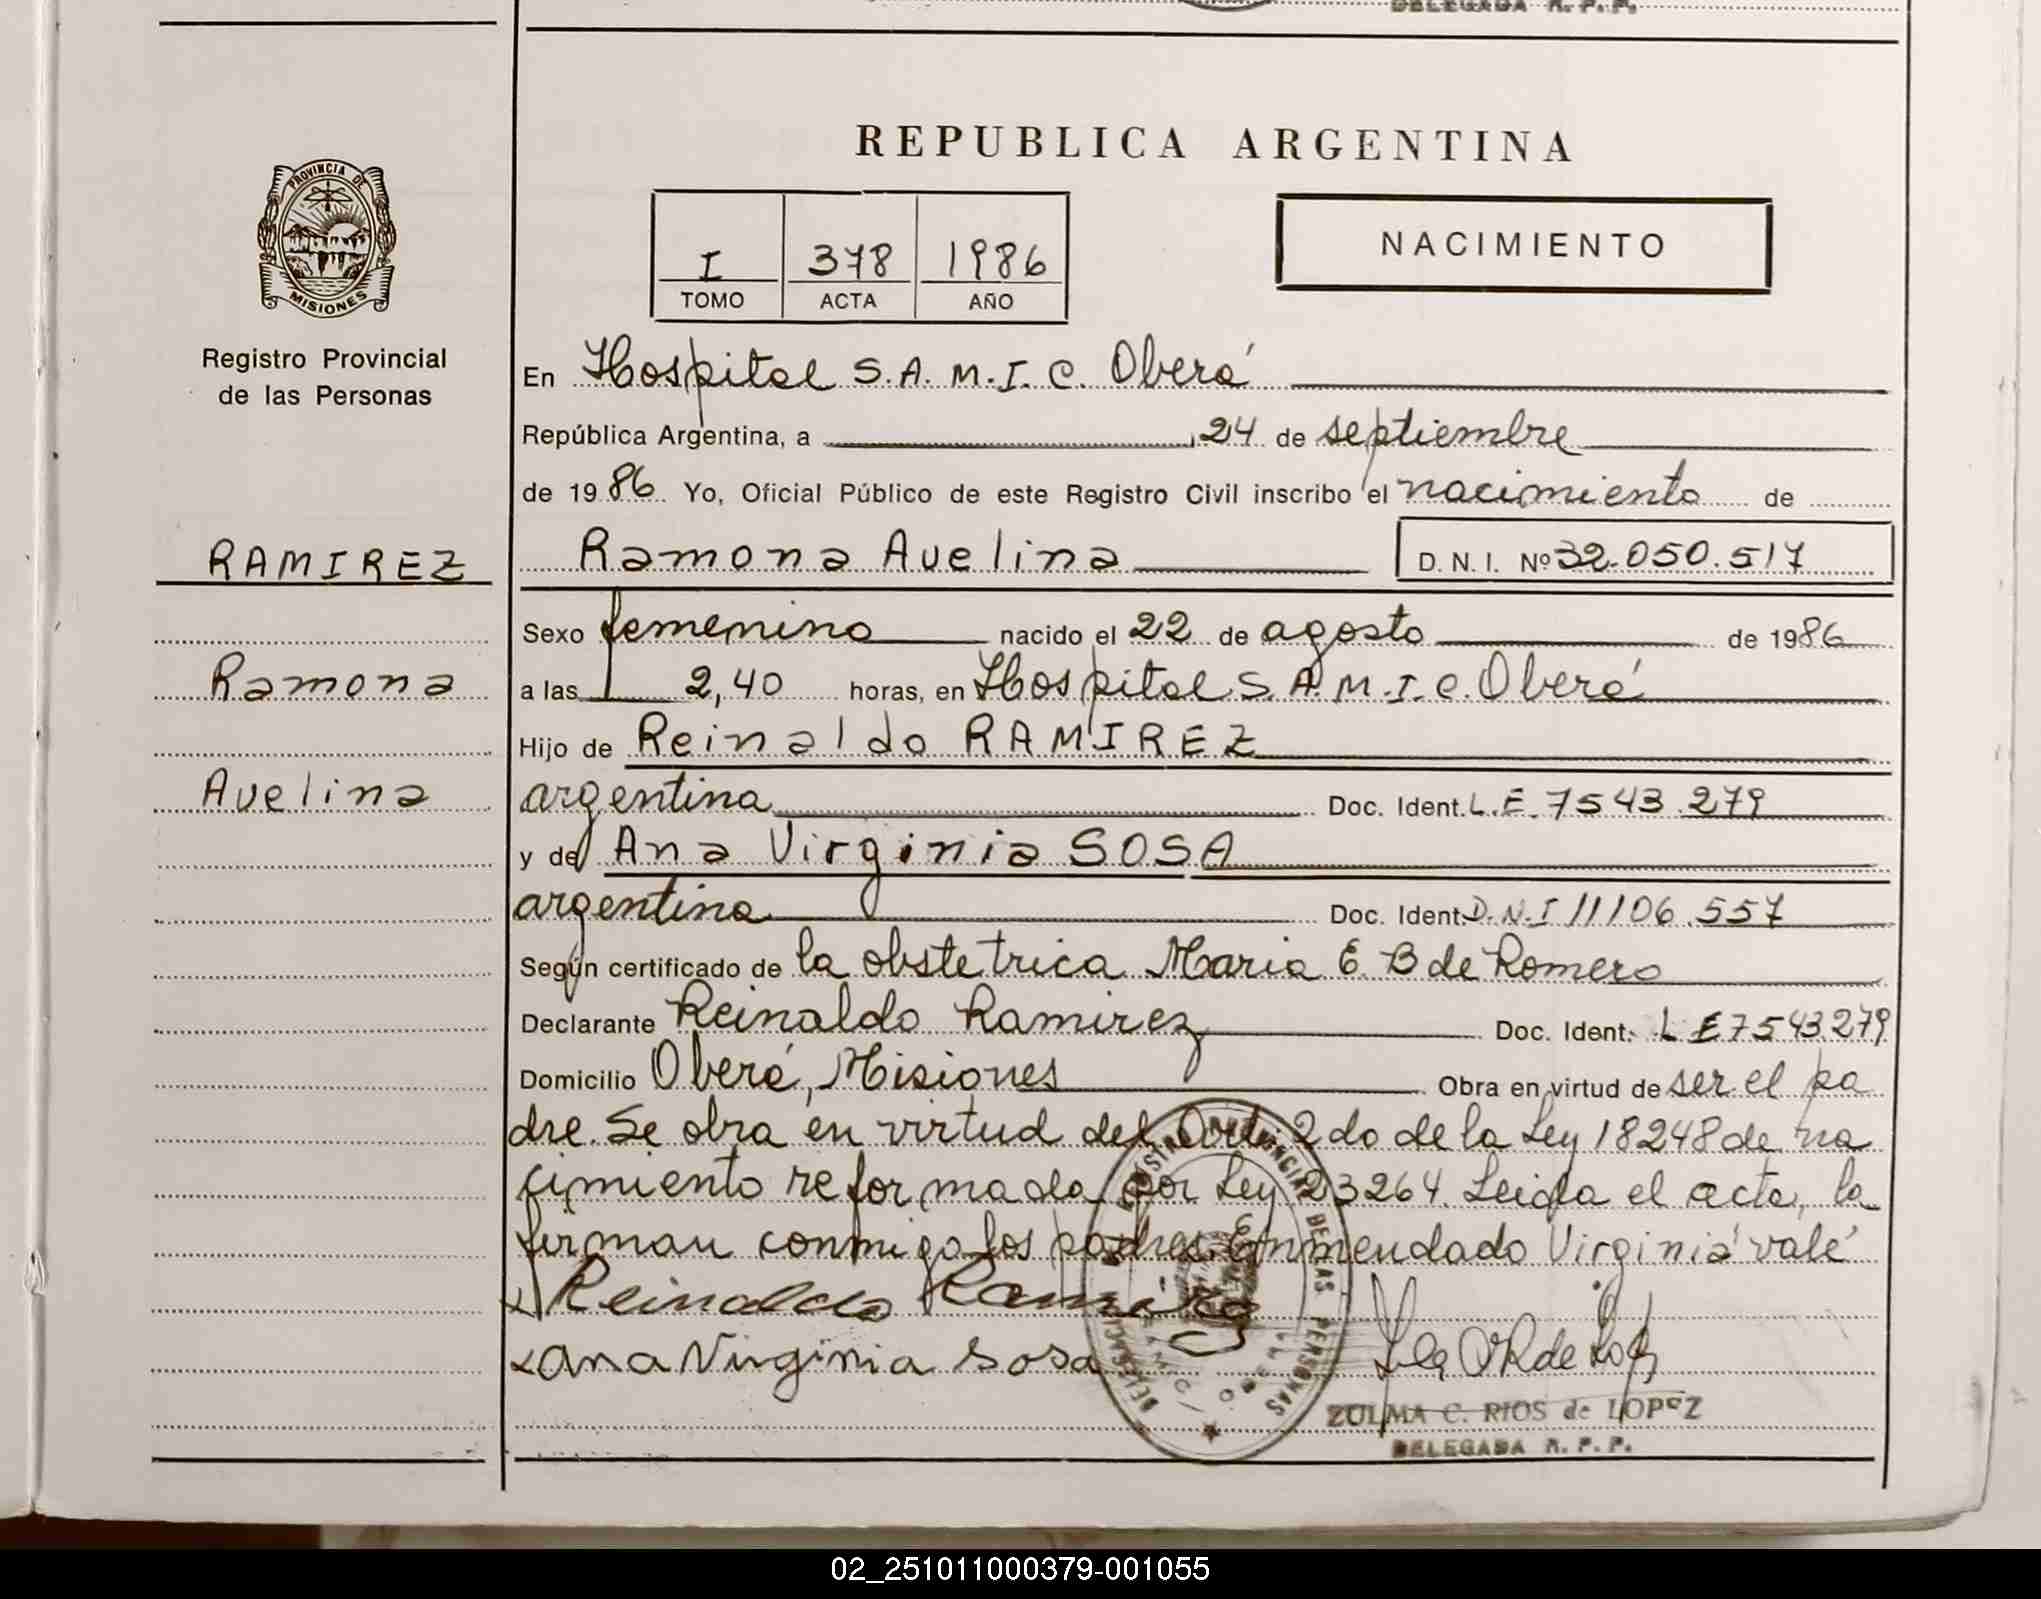 DELEGADA R. P. P.
REPUBLICA ARGENTINA
PROVINCIA DE
MISIONES
I 378 1986
TOMO ACTA AÑO
NACIMIENTO
Registro Provincial
de las Personas
En Hospital S.A.M.I.C. Oberá
República Argentina, a , 24 de septiembre
de 1986 Yo, Oficial Público de este Registro Civil inscribo el nacimiento de
RAMIREZ
Ramona Avelina D. N. I. Nº 32.050.517
Sexo femenino nacido el 22 de agosto de 1986
Ramona
a las 2,40 horas, en Hospital S.A.M.I.C. Oberá
Hijo de Reinaldo RAMIREZ
Avelina
argentina Doc. Ident. L.E. 7543.279
y de Ana Virginia SOSA
argentina Doc. Ident. D.N.I 11106.557
Según certificado de la obstetrica Maria E. B de Romero
Declarante Reinaldo Ramirez Doc. Ident: L E 7543279
Domicilio Oberá, Misiones Obra en virtud de ser el pa
dre. Se obra en virtud del Art. 2do de la Ley 18248 de na
cimiento reformada por Ley 23264. Leida el acta, la
firman conmigo los padres. Enmendado Virginia vale
Reinaldo Ramirez
ana Virginia Sosa
REGISTRO PROVINCIAL DE LAS PERSONAS
ZULMA C. RIOS de LOPEZ
DELEGADA R. P. P.
02_251011000379-001055